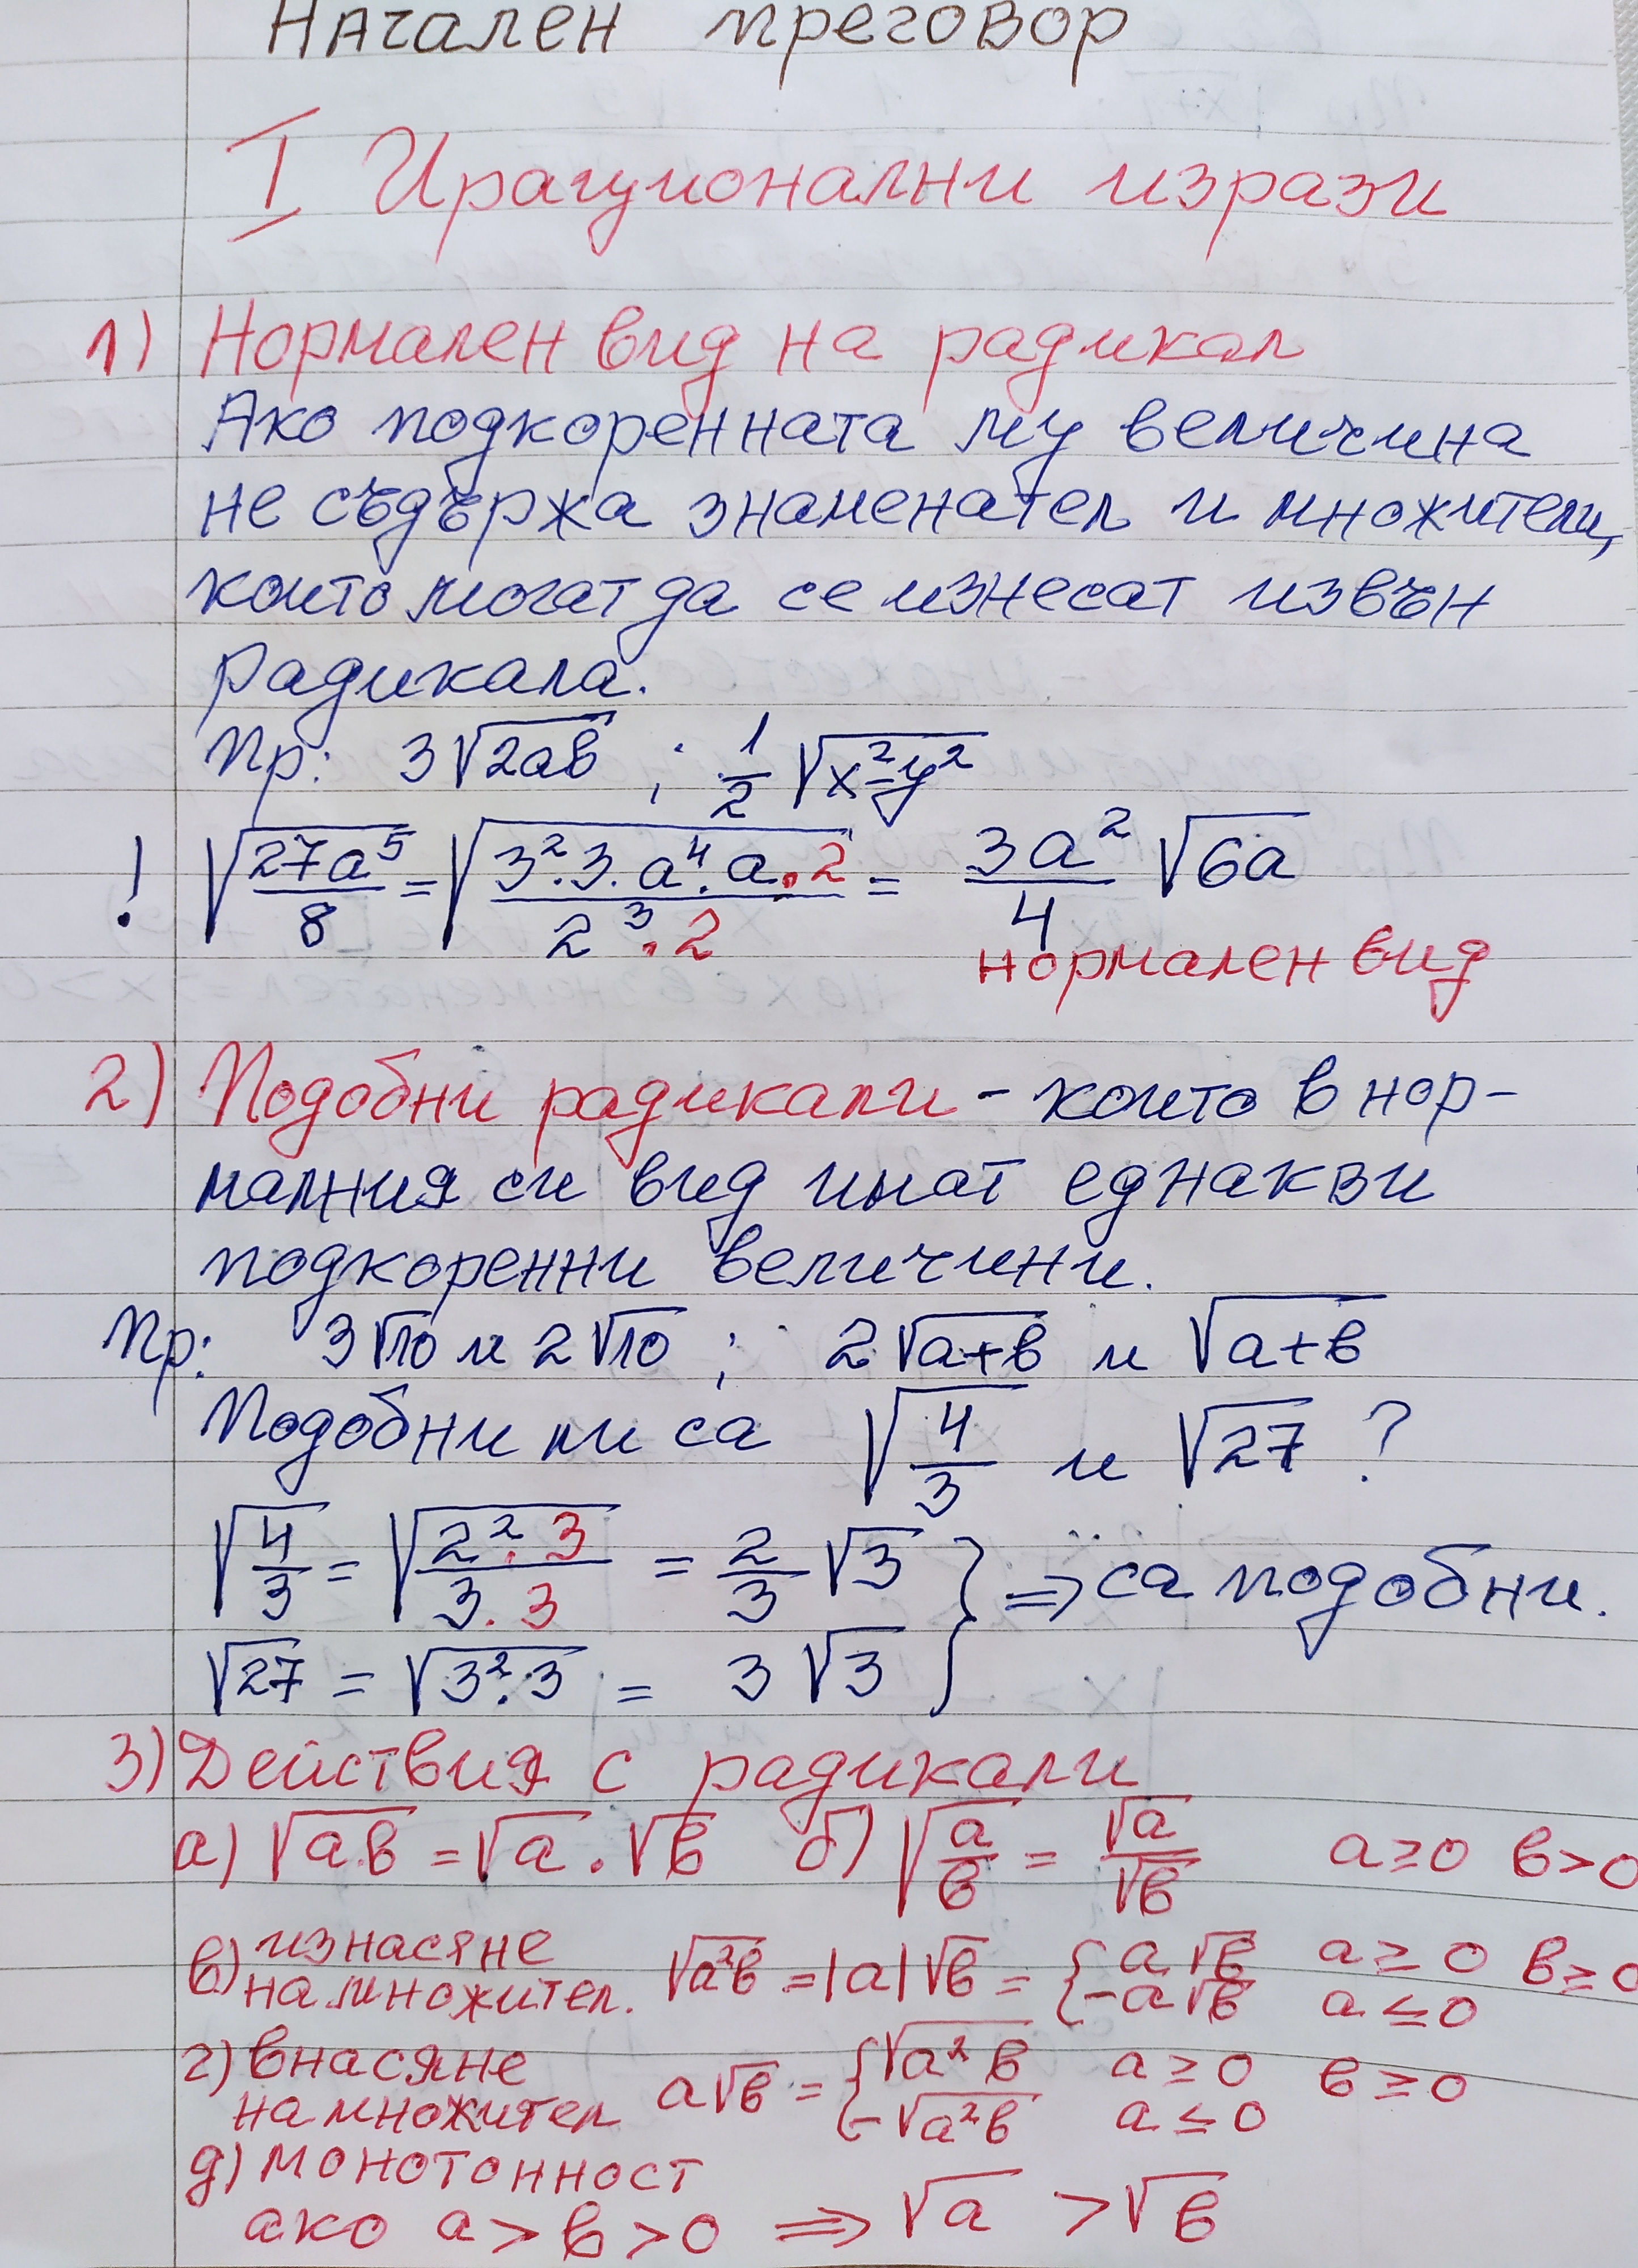 Начален преговор
I Ирационални изрази
1) Нормален вид на радикал
Ако подкоренната му величина
не съдържа знаменател и множители,
които могат да се изнесат извън
радикала.
Пр: 3√(2ab) ; 1/2 √(x²-y²)
! √(27a⁵/8) = √((3².3.a⁴.a.2)/(2³.2)) = 3a²/4 √(6a)
нормален вид
2) Подобни радикали - които в нор-
малния си вид имат еднакви
подкоренни величини.
Пр: 3√10 и 2√10 ; 2√(a+b) и √(a+b)
Подобни ли са √(4/3) и √27 ?
√(4/3) = √((2².3)/(3.3)) = 2/3 √3 } ⇒ са подобни.
√27 = √(3².3) = 3√3
3) Действия с радикали
а) √(a.b) = √a . √b б) √(a/b) = √a/√b a≥0 b>0
в) изнасяне на множител. √(a²b) = |a|√b = { a√b a≥0 b≥0
-a√b a≤0
г) внасяне на множител a√b = { √(a²b) a≥0 b≥0
-√(a²b) a≤0
д) монотонност
ако a > b > 0 ⇒ √a > √b